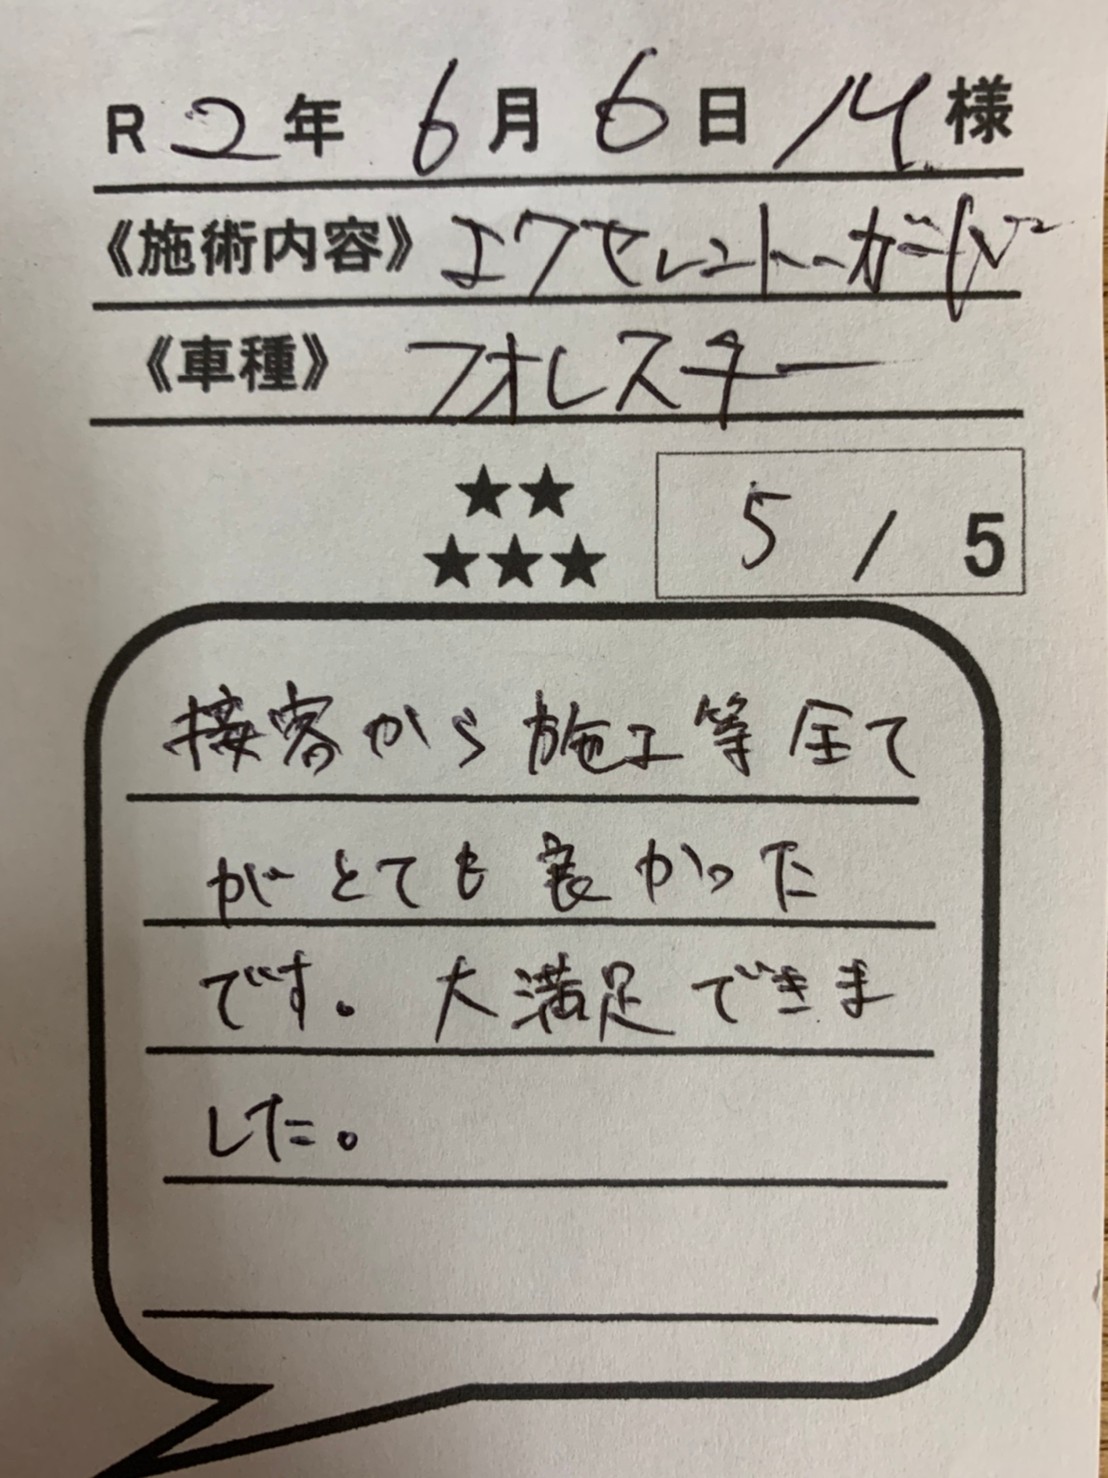 R2年6月6日 M様
《施術内容》エクセレントガード
《車種》フォレスター
★★
★★★
5/5
接客から施工等全て
がとても良かった
です。大満足できま
した。